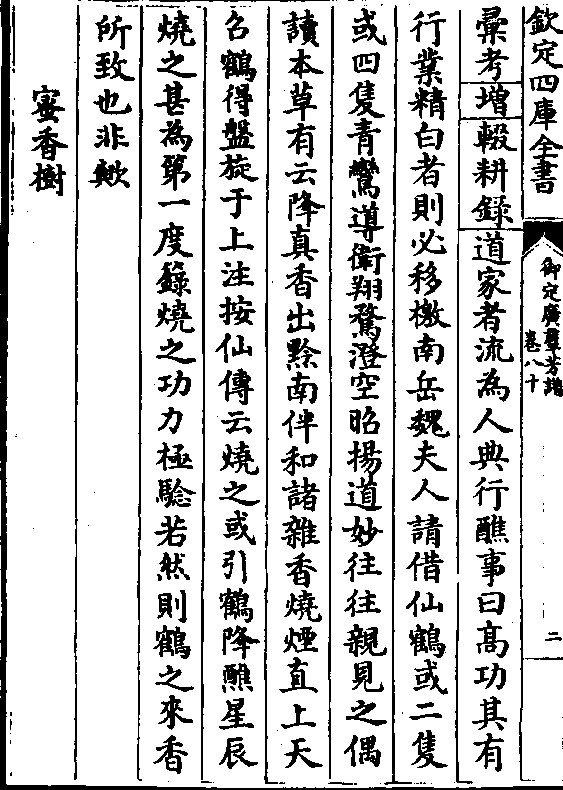 欽定四庫全書
御定廣羣芳譜
卷八十
二
彙考增輟耕錄道家者流為人典行醮事曰高功其有
行業精白者則必移檄南岳魏夫人請借仙鶴或二隻
或四隻青鸞導衛翔騖澄空昭揚道妙往往親見之偶
讀本草有云降真香出黔南伴和諸雜香燒煙直上天
召鶴得盤旋于上注按仙傳云燒之或引鶴降醮星辰
燒之甚為第一度籙燒之功力極驗若然則鶴之來香
所致也非歟
蜜香樹